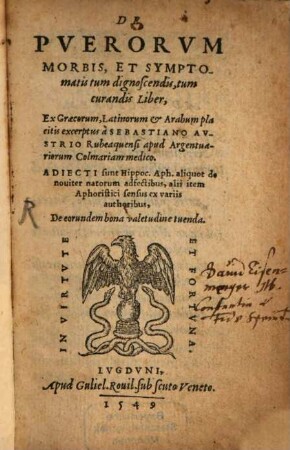 DE
PVERORVM
MORBIS, ET SYMPTO-
matis tum dignoscendis, tum
curandis Liber,
Ex Græcorum, Latinorum & Arabum pla
citis excerptus à SEBASTIANO AV-
STRIO Rubeaquensi apud Argentua-
riorum Colmariam medico.
ADIECTI sunt Hippoc. Aph. aliquot de
nouiter natorum adfectibus, alii item
Aphoristici sensus ex variis
authoribus,
De eorundem bona valetudine tuenda.
R
IN VIRTVTE
ET FORTVNA.
LVGDVNI,
Apud Guliel. Rouil. sub scuto Veneto.
1549